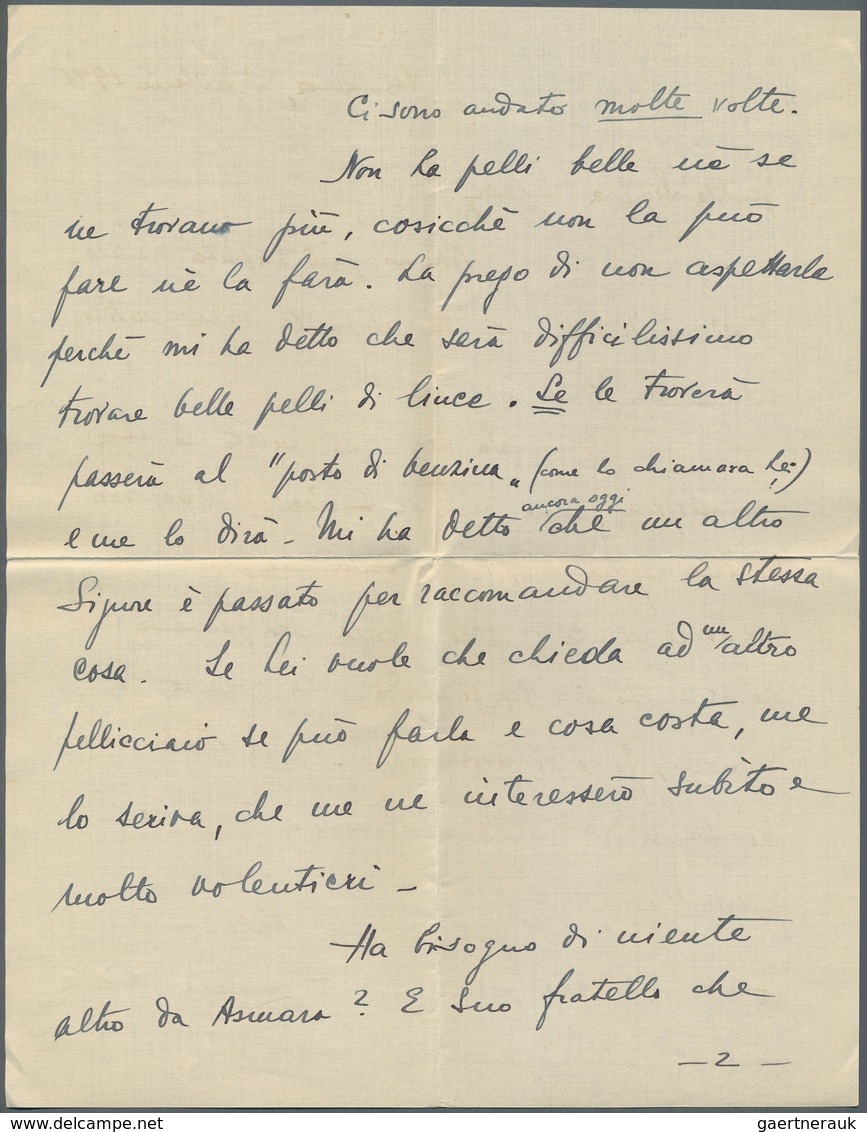 Ci sono andato molte volte.
Non ha pelli belle nè se
ne trovano più, cosicchè non la può
fare nè la farà. La prego di non aspettarla
perchè mi ha detto che sarà difficilissimo
trovare belle pelli di lince. Se le troverà
passerà al "posto di benzina" (come lo chiamava Lei)
e me lo dirà - Mi ha detto ancora oggi che un altro
Signore è passato per raccomandare la stessa
cosa. Se Lei vuole che chieda ad un altro
pellicciaio se può farla e cosa costa, me
lo scriva, che me ne interesserò subito e
molto volentieri -
Ha bisogno di niente
altro da Asmara? E suo fratello che
- 2 -
www.delcampe.net
gaertnerauk